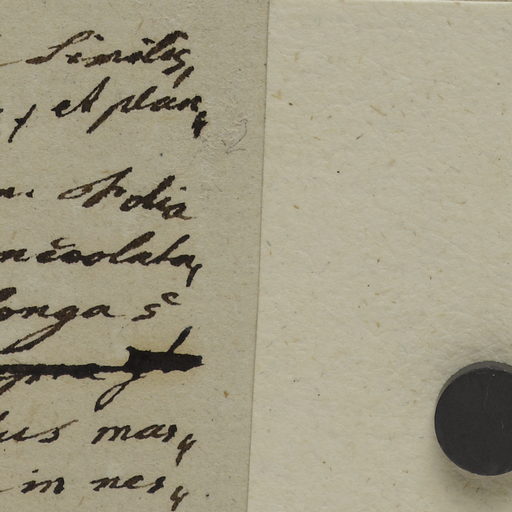 Similis,
et plan„
Folia
nceolata,
longa s̄
us mar„
in ner„